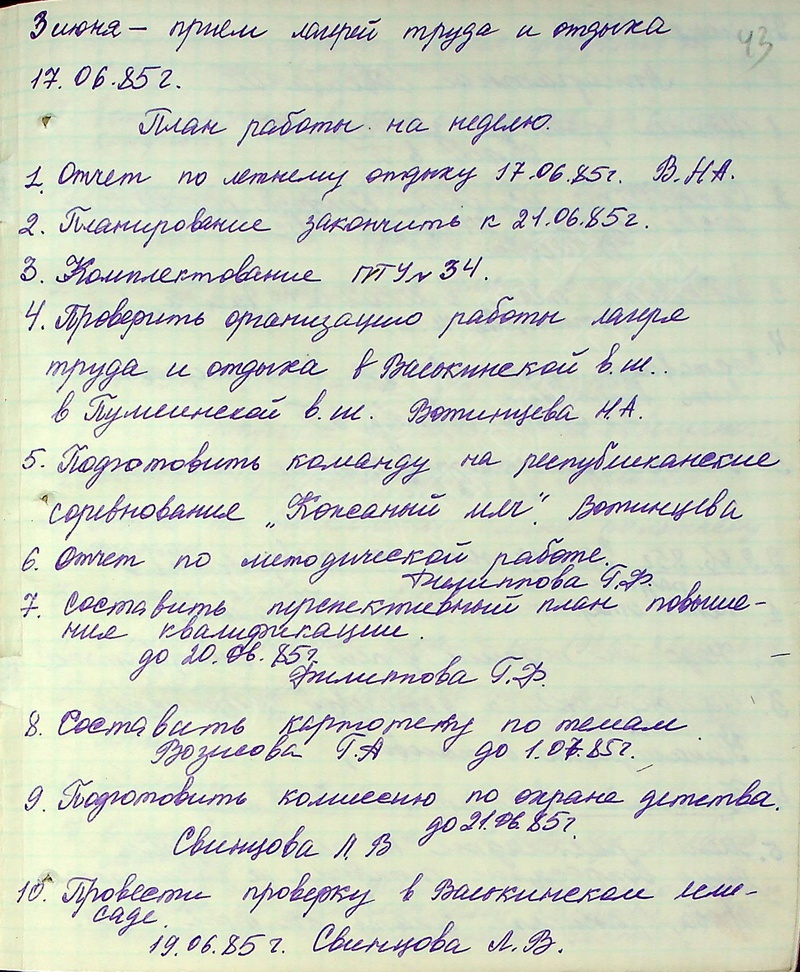 3 июня – прием лагерей труда и отдыха
43
17.06.85г.
План работы на неделю.
1. Отчет по летнему отдыху 17.06.85г. В.НА.
2. Планирование закончить к 21.06.85г.
3. Комплектование ПТУ № 34.
4. Проверить организацию работы лагеря
труда и отдыха в Васькинской в.ш..
в Пумсинской в.ш. Вотинцева Н.А.
5. Подготовить команду на республиканские
соревнование „Кожаный мяч". Вотинцева
6. Отчет по методической работе.
Филиппова Г.Ф.
7. Составить перспективный план повыше-
ния квалификации.
до 20.06.85г.
Филиппова Г.Ф.
8. Составить картотеку по темам
Г.А до 1.07.85г.
9. Подготовить комиссию по охране детства.
до 21.06.85г.
Свинцова Л.В
10. Провести проверку в Васькинском
саде.
19.06.85г. Свинцова Л.В.